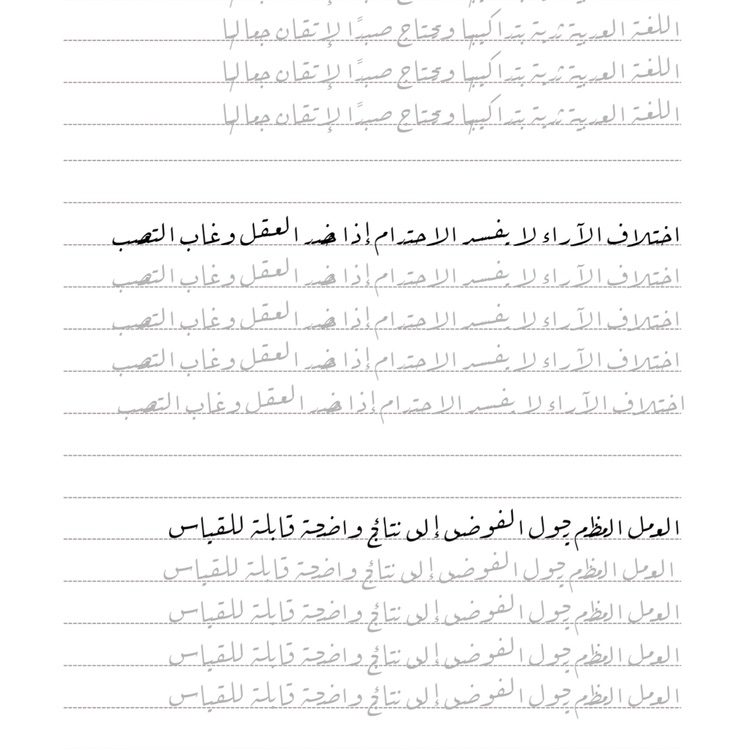 اللغة العربية ثرية بتراكيبها وتحتاج صبرًا لإتقان جمالها
اللغة العربية ثرية بتراكيبها وتحتاج صبرًا لإتقان جمالها
اللغة العربية ثرية بتراكيبها وتحتاج صبرًا لإتقان جمالها
اختلاف الآراء لا يفسد الاحترام إذا حضر العقل وغاب التعصب
اختلاف الآراء لا يفسد الاحترام إذا حضر العقل وغاب التعصب
اختلاف الآراء لا يفسد الاحترام إذا حضر العقل وغاب التعصب
اختلاف الآراء لا يفسد الاحترام إذا حضر العقل وغاب التعصب
اختلاف الآراء لا يفسد الاحترام إذا حضر العقل وغاب التعصب
العمل المنظم يحول الفوضى إلى نتائج واضحة قابلة للقياس
العمل المنظم يحول الفوضى إلى نتائج واضحة قابلة للقياس
العمل المنظم يحول الفوضى إلى نتائج واضحة قابلة للقياس
العمل المنظم يحول الفوضى إلى نتائج واضحة قابلة للقياس
العمل المنظم يحول الفوضى إلى نتائج واضحة قابلة للقياس